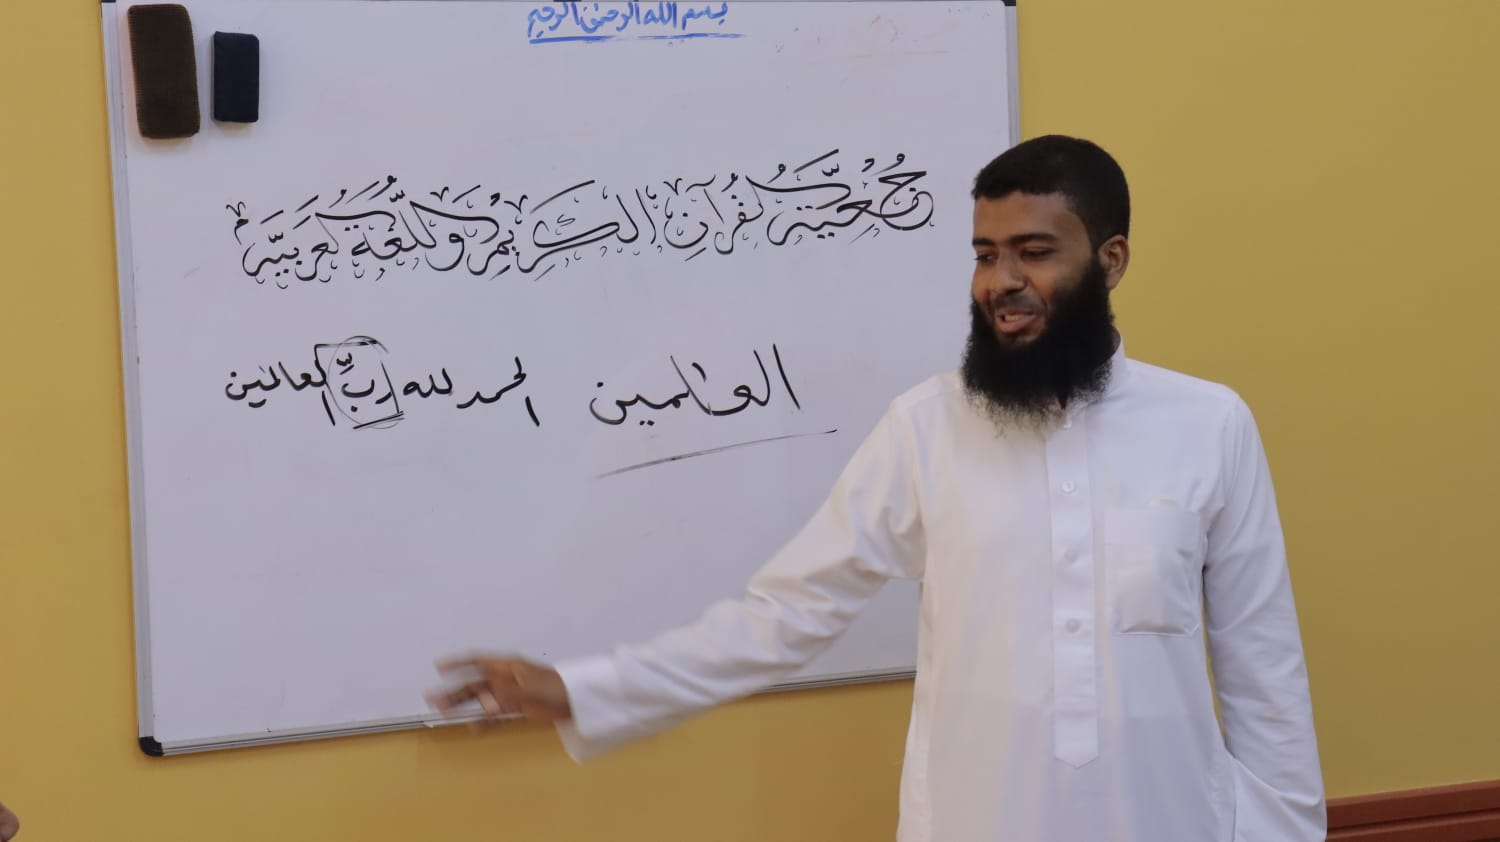 بسم الله الرحمن الرحيم
جُمُعِيَّة لقُرآنِ الكَرِيمِ وَللُّغَةُ لعَرَبيَّة
العالمين
الحمد لله ربِّ العالمين